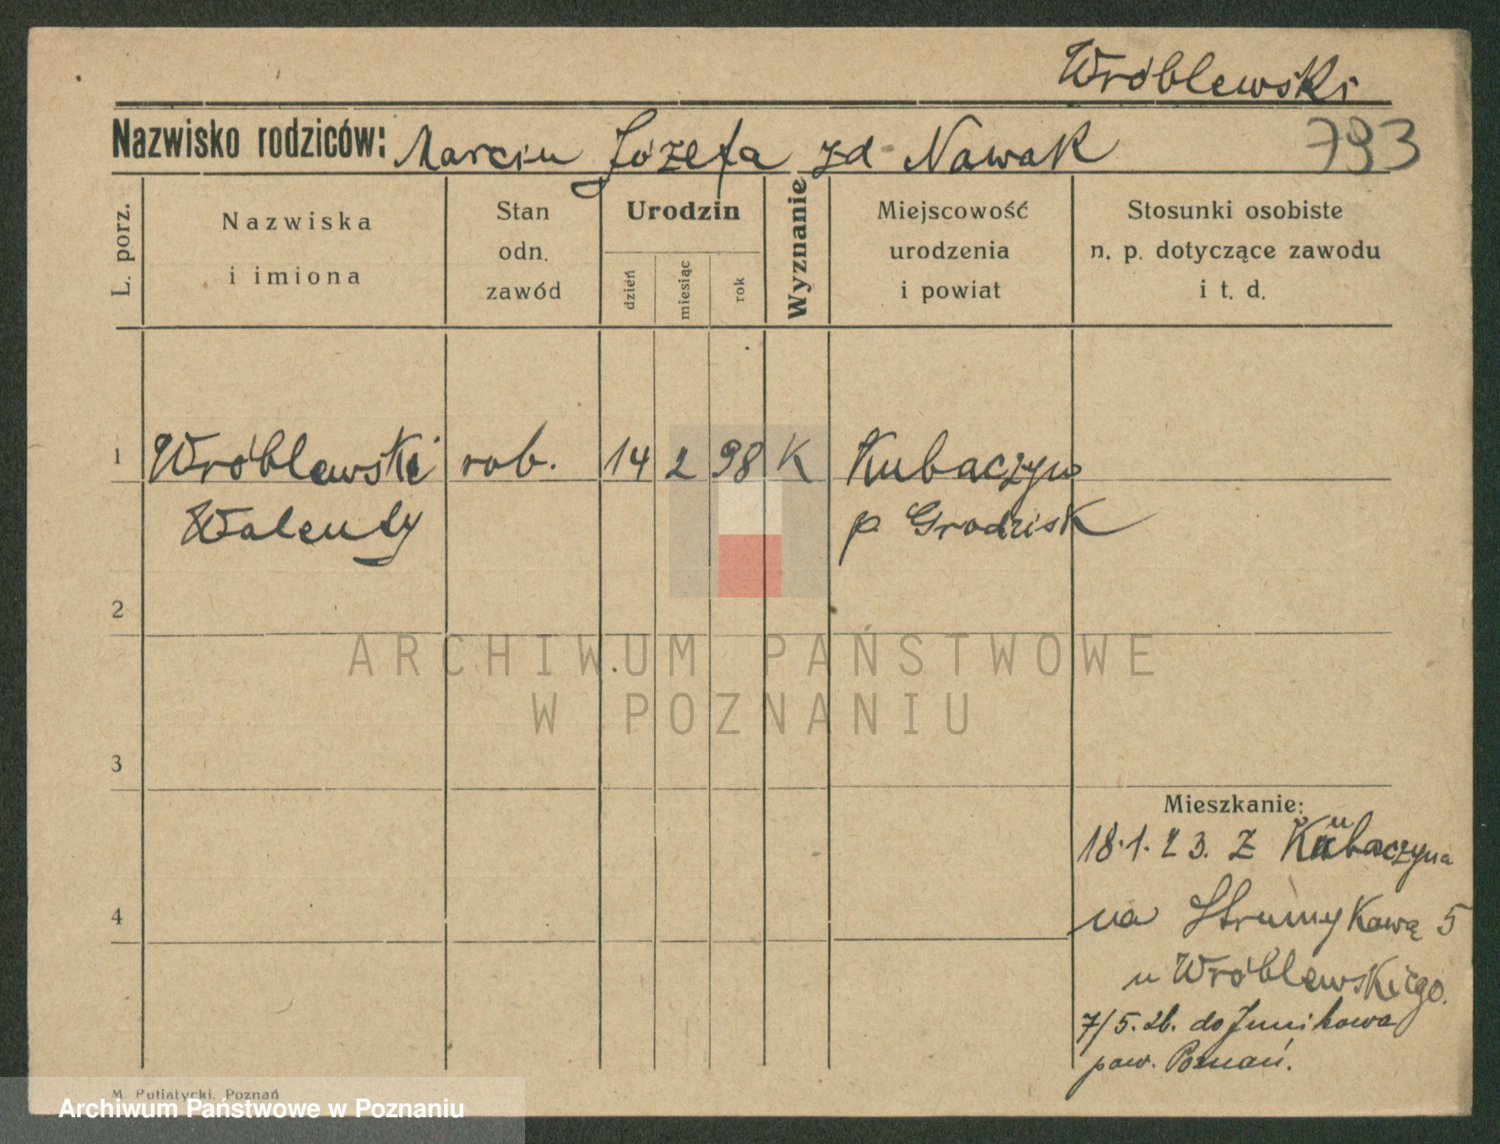 Wróblewski
Nazwisko rodziców: Marcin Józefa zd Nowak
793
L. porz.
Nazwiska i imiona
Stan odn. zawód
Urodzin
dzień
miesiąc
rok
Wyznanie
Miejscowość urodzenia i powiat
Stosunki osobiste n. p. dotyczące zawodu i t. d.
1 Wróblewski rob. 14 2 98 K Kubaczyn
Walenty p Grodzisk
2
ARCHIWUM PAŃSTWOWE
W POZNANIU
3
Mieszkanie:
18.1.23. z Kubaczyna
4
na Strumykową 5
u Wróblewskiego.
7/5.26. do Junikowa
pow. Poznań.
M. Putiatycki, Poznań
Archiwum Państwowe w Poznaniu